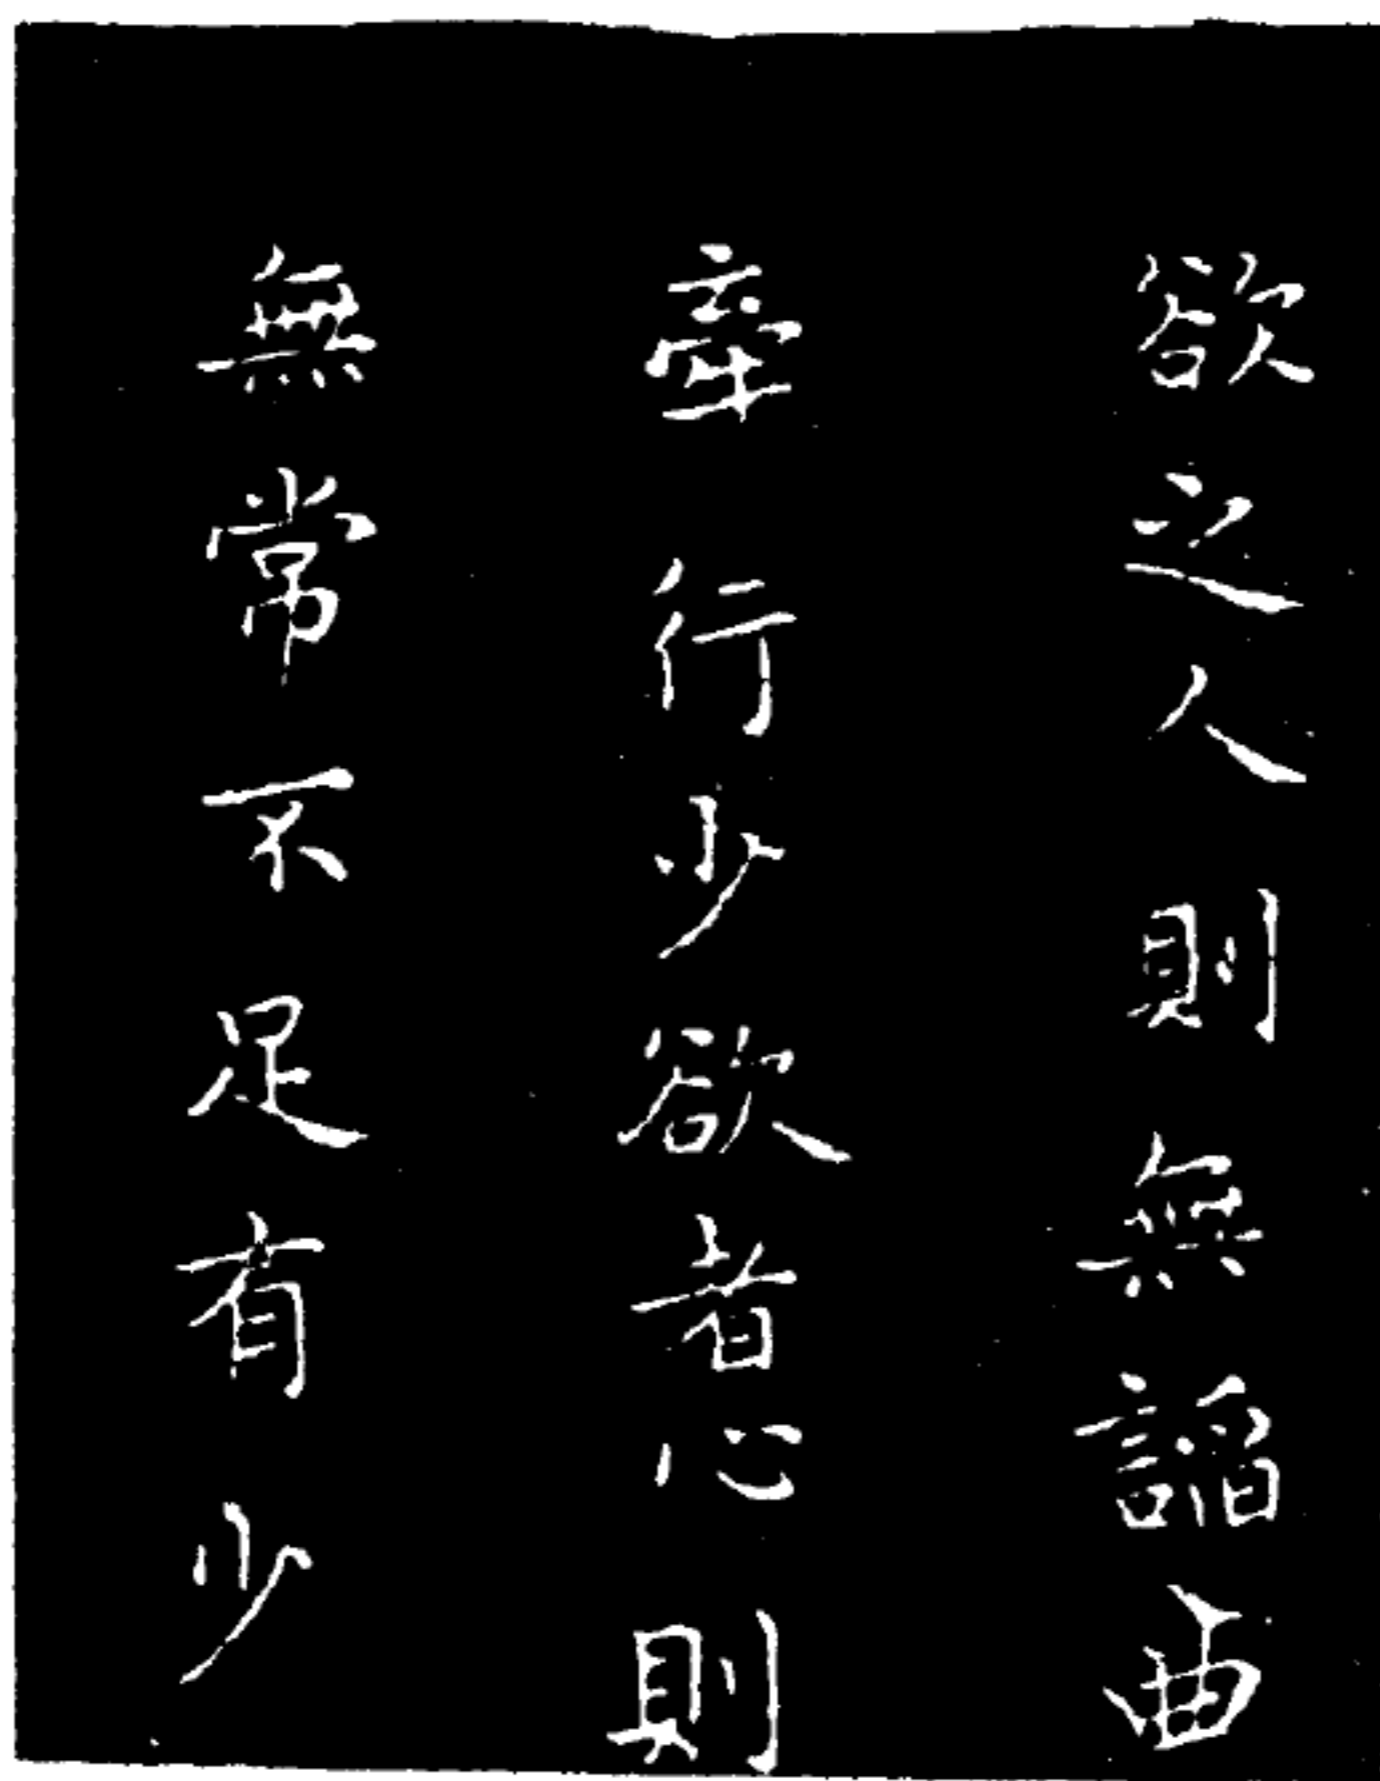 欲之人則無謟曲
牽行少欲者心則
無常不足有少